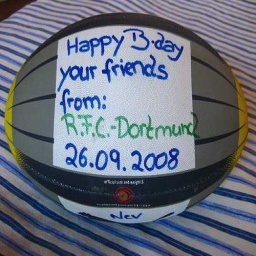 Happy B-day
your friends
from:
R.F.C.-Dortmund
26.09.2008